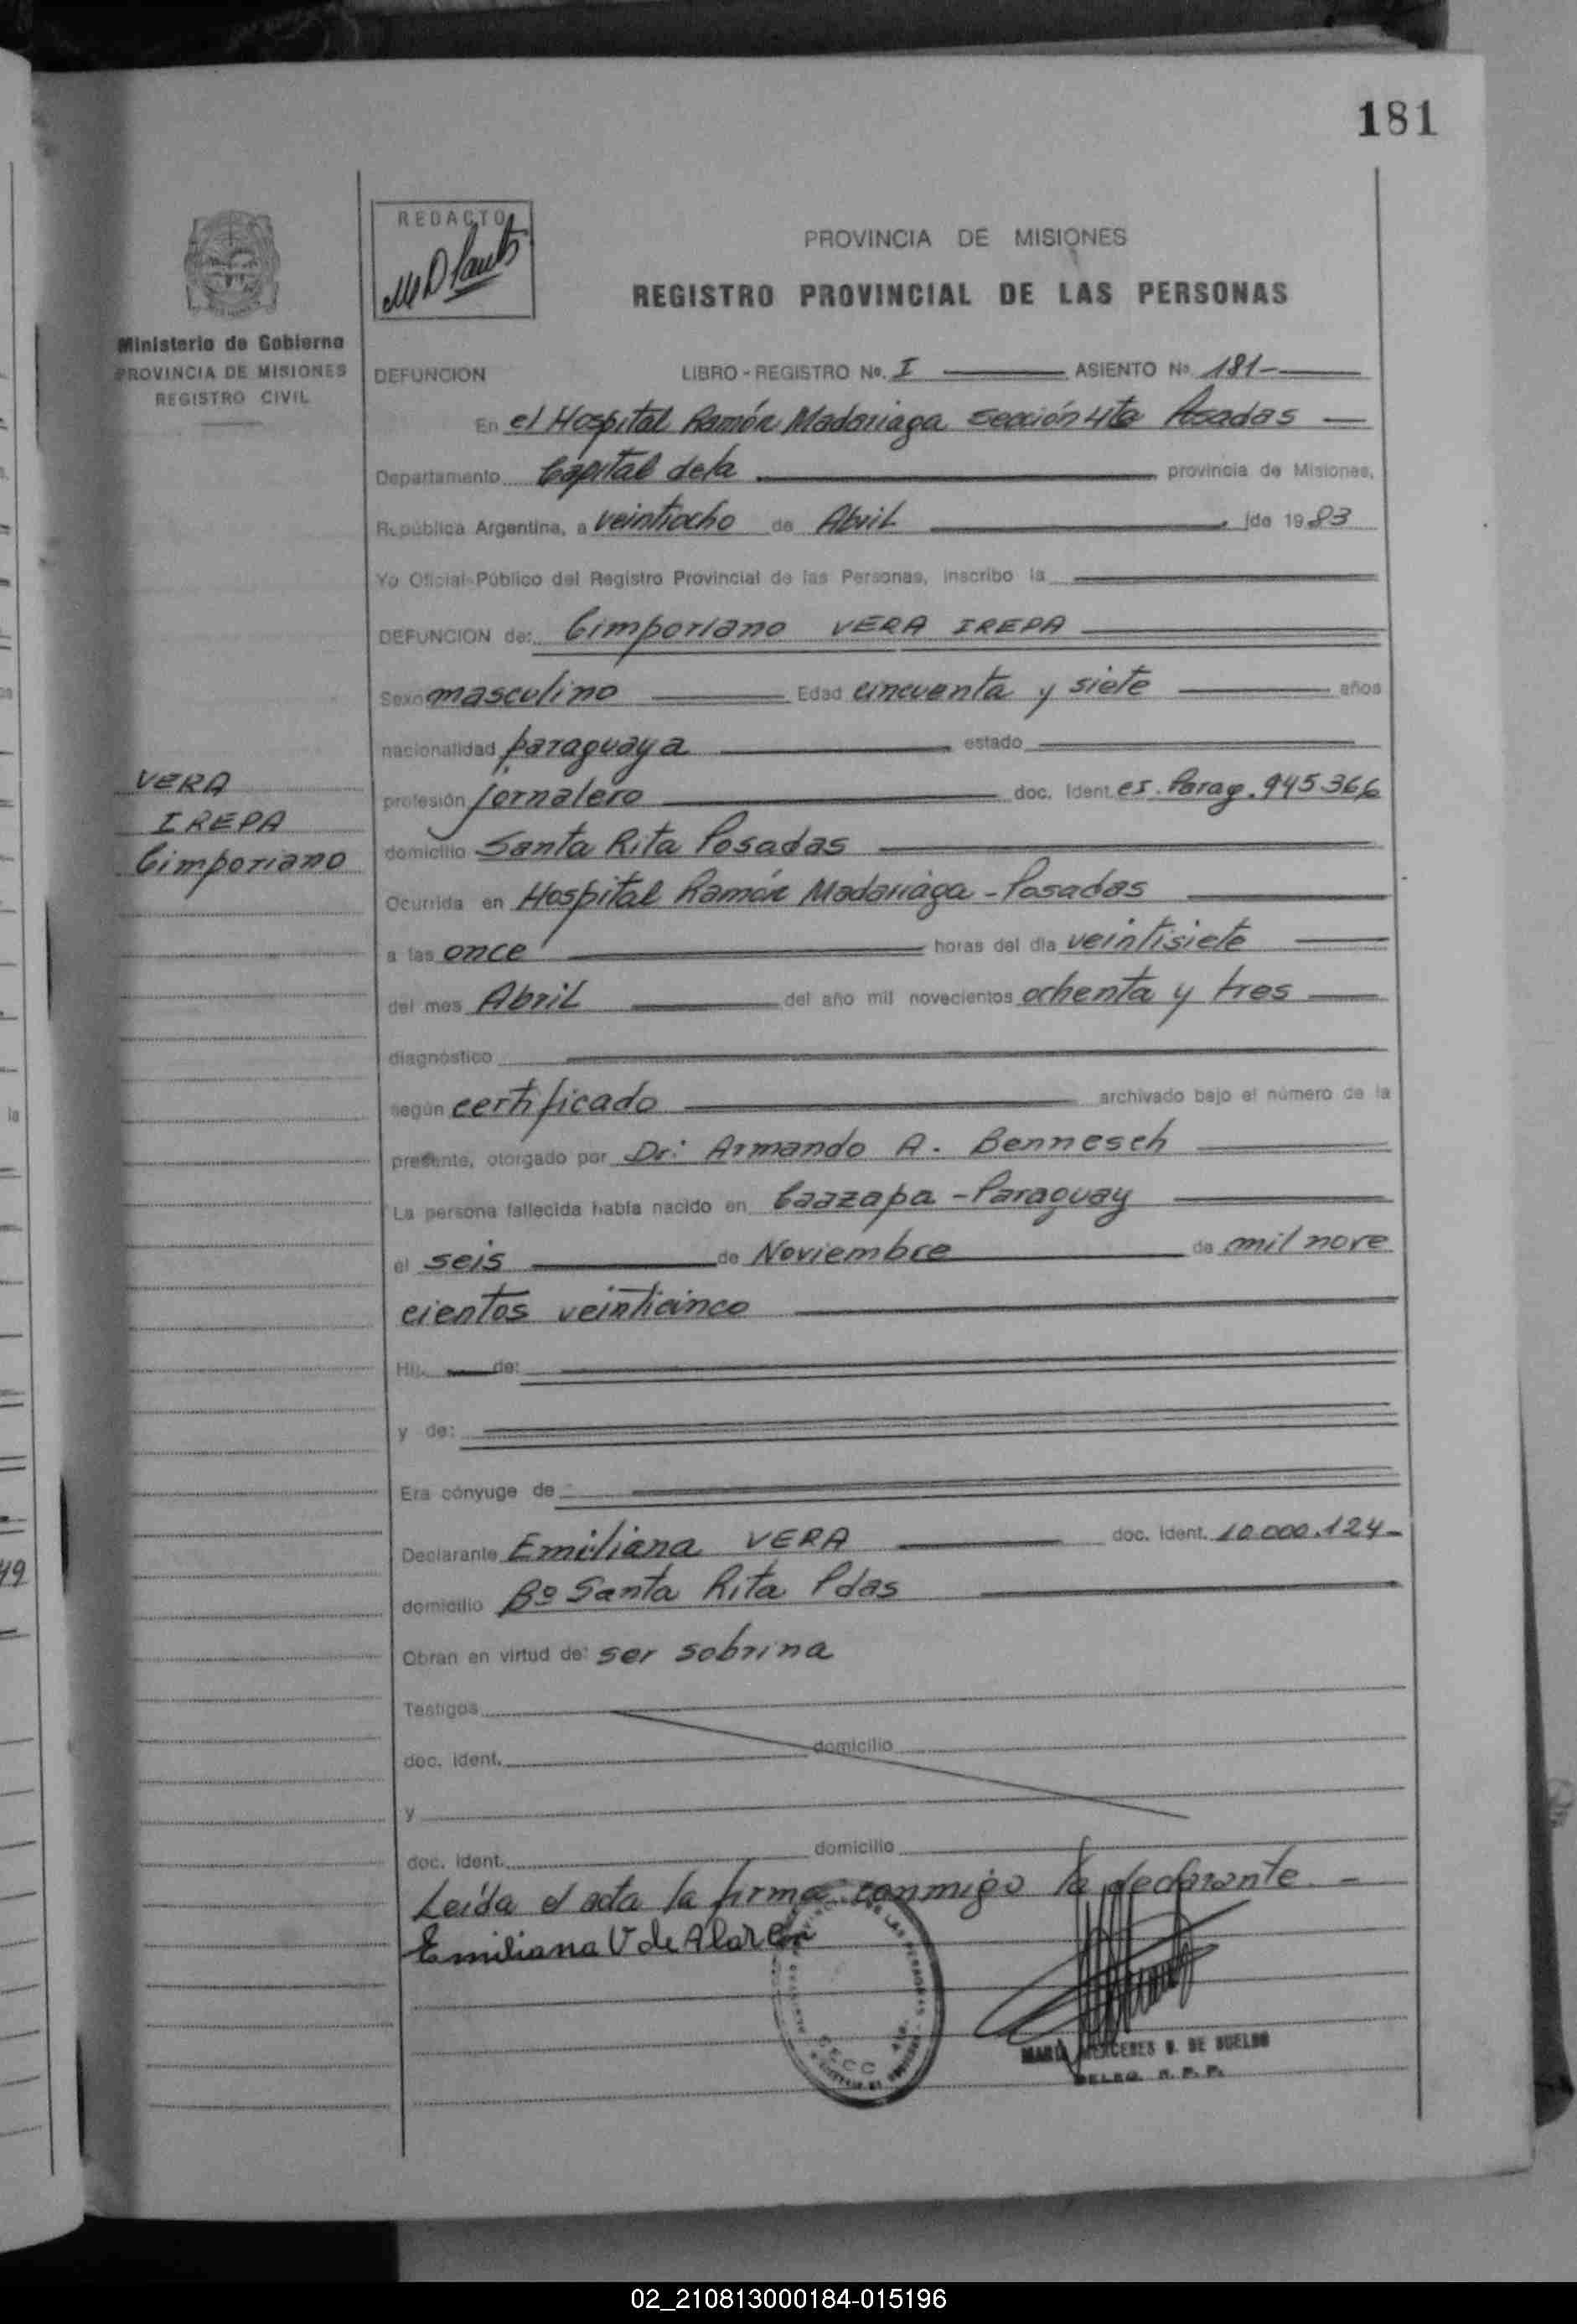 181
REDACTO
PROVINCIA DE MISIONES
REGISTRO PROVINCIAL DE LAS PERSONAS
Ministerio de Gobierno
PROVINCIA DE MISIONES
REGISTRO CIVIL
DEFUNCION LIBRO - REGISTRO No. I ASIENTO No. 181-
En el Hospital Ramón Madariaga sección 4ta Posadas
Departamento Capital de la provincia de Misiones,
República Argentina, a veintiocho de Abril de 1983
Yo Oficial Público del Registro Provincial de las Personas, inscribo la
DEFUNCION de: Cimporiano VERA IREPA
Sexo masculino Edad cincuenta y siete años
nacionalidad paraguaya estado
profesión jornalero doc. Ident. es. Parag. 945.366
domicilio Santa Rita Posadas
VERA
IREPA
Cimporiano
Ocurrida en Hospital Ramón Madariaga - Posadas
a las once horas del día veintisiete
del mes Abril del año mil novecientos ochenta y tres
diagnóstico
según certificado archivado bajo el número de la
presente, otorgado por Dr: Armando A. Bennesch
La persona fallecida había nacido en Caazapa - Paraguay
el seis de Noviembre de mil nove
cientos veinticinco
Hij de:
y de:
Era cónyuge de
Declarante Emiliana VERA doc. Ident. 10.000.124-
domicilio Bº Santa Rita Pdas
Obran en virtud de: ser sobrina
Testigos
doc. Ident. domicilio
y
doc. Ident. domicilio
Leída el acta la firma conmigo la declarante. -
Emiliana V de Alarcón
DELEG. R. P. P.
49
02_210813000184-015196